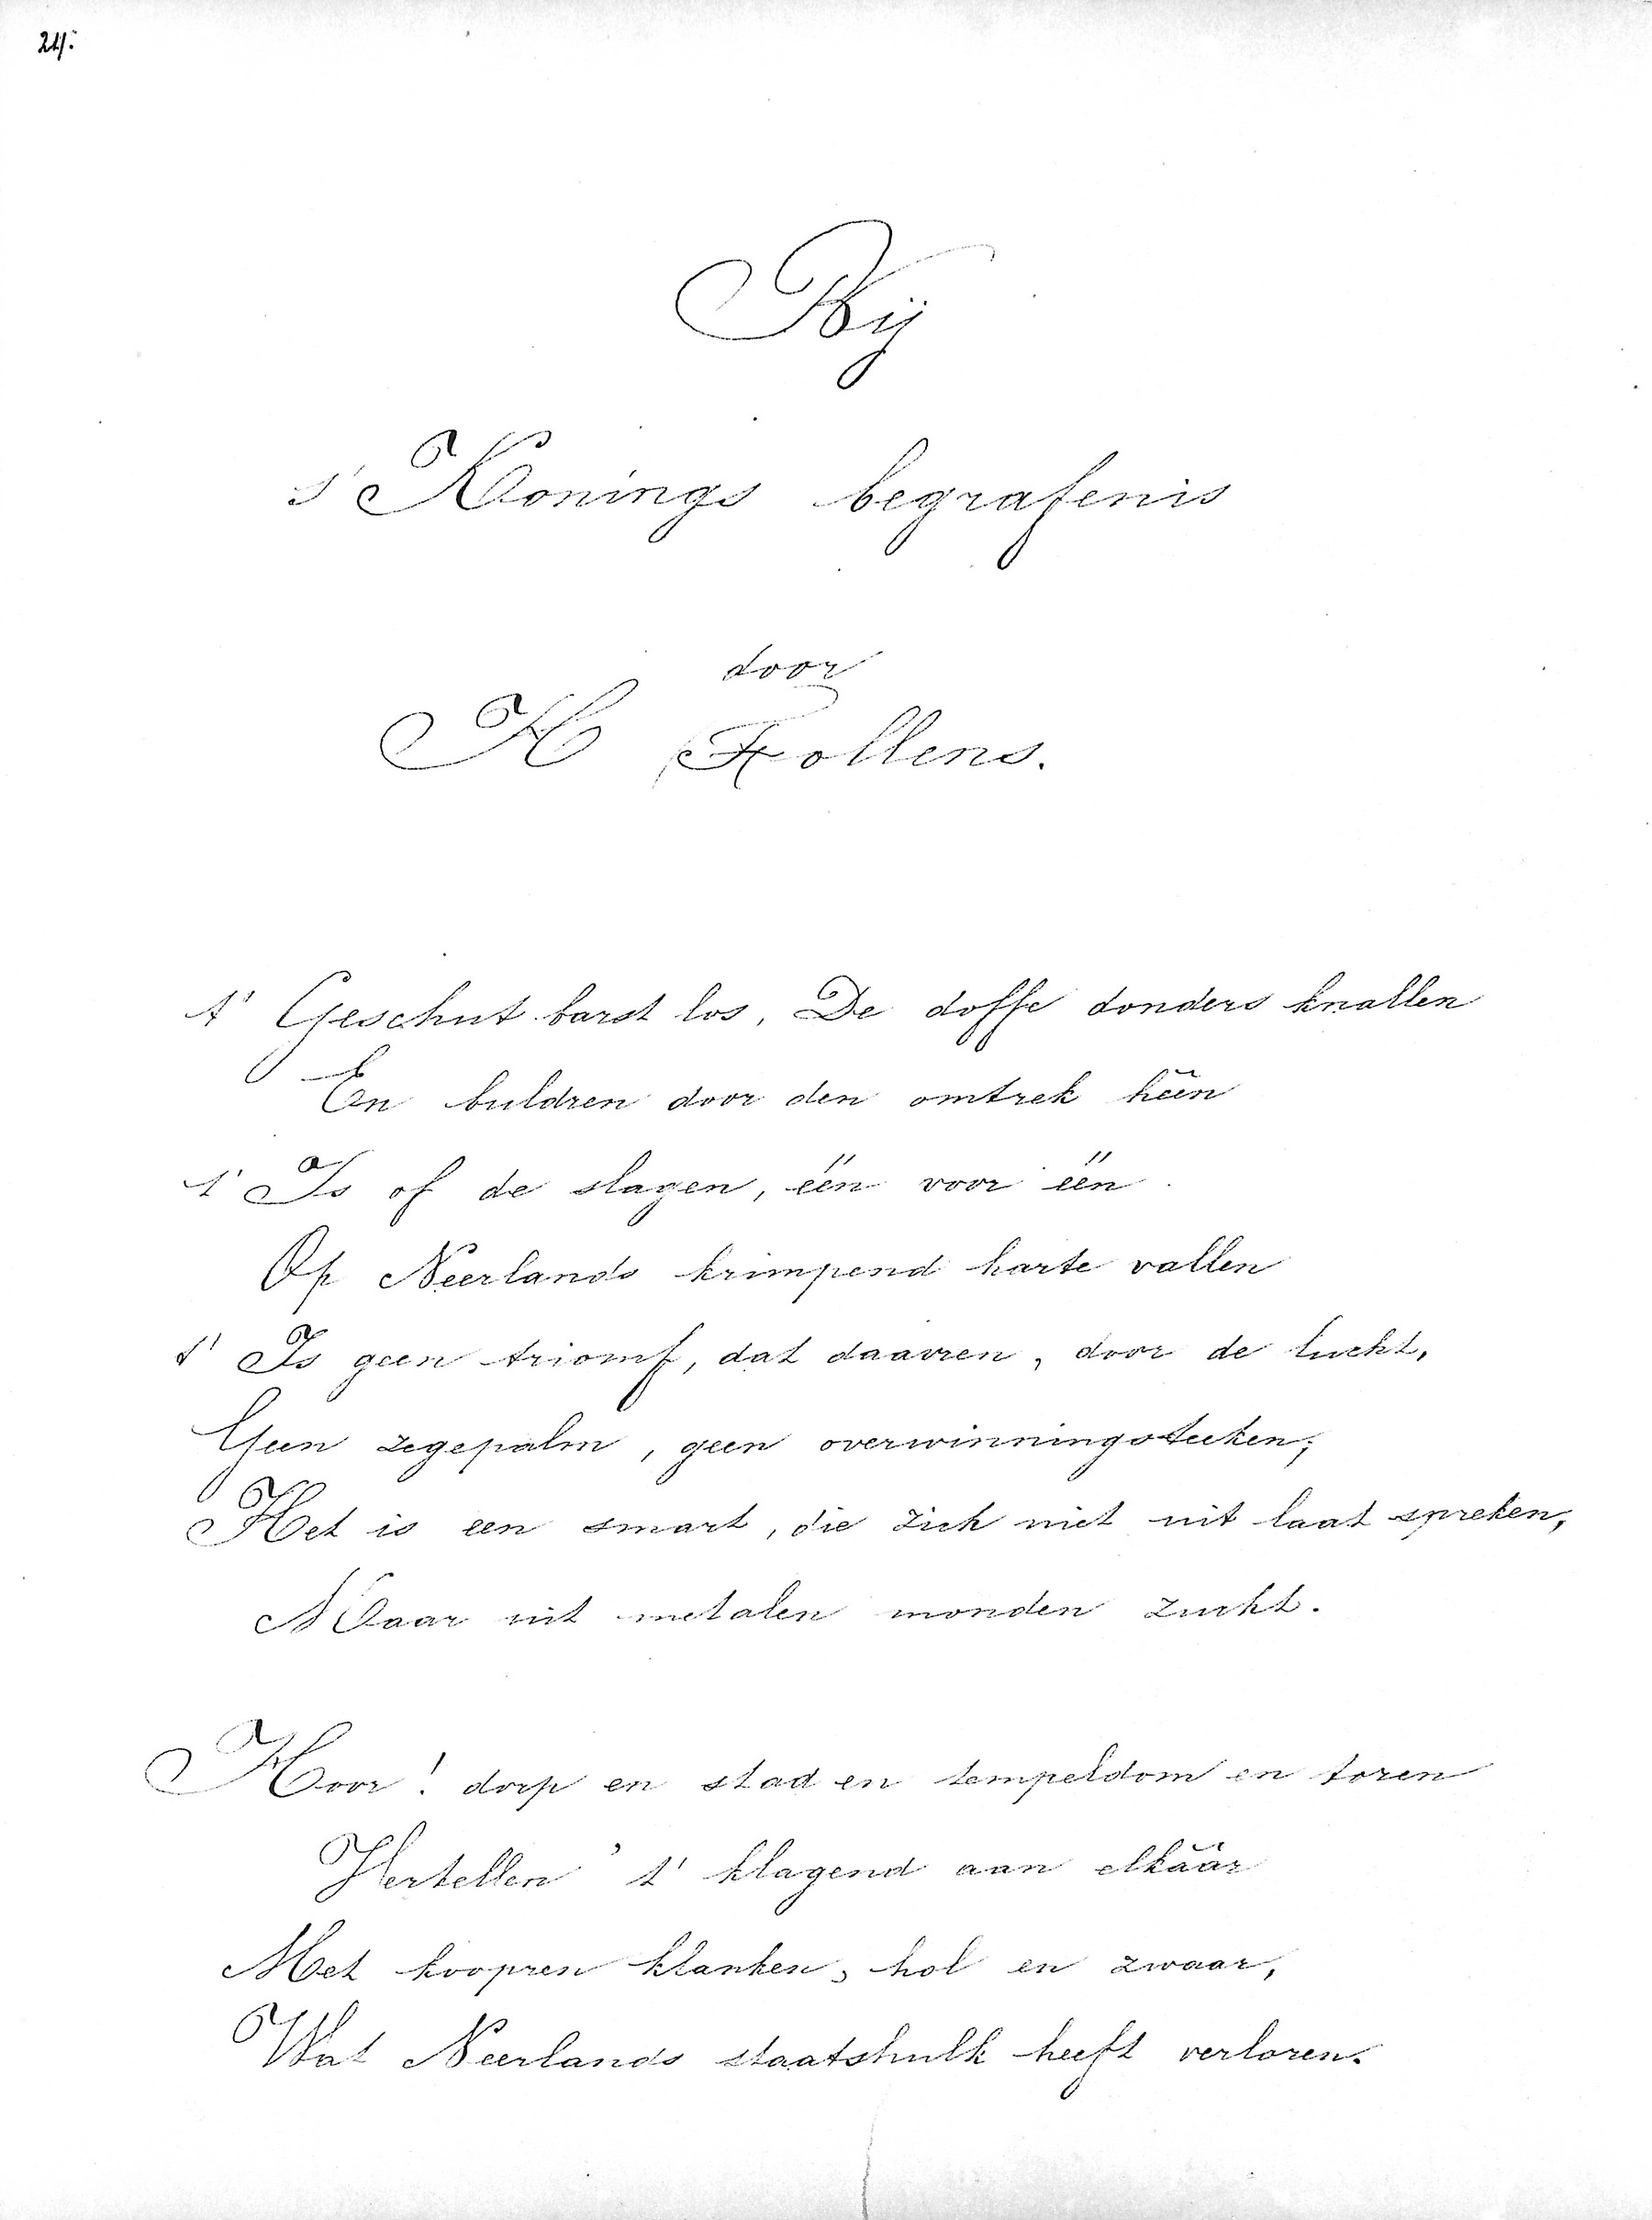 24:
Bij
s' Konings begrafenis
door
H Tollens.
t' Geschut barst los, De doffe donders knallen
En buldren door den omtrek hëën
t' Is of de slagen, één voor één
Op Neerlands krimpend harte vallen
t' Is geen triomf, dat daavren, door de lucht,
Geen zegepalm, geen overwinningsteeken;
Het is een smart, die zich niet uit laat spreken,
Maar uit metalen monden zucht.
Hoor! dorp en stad en tempeldom en toren
Hertellen 't' klagend aan elkäär
Met koopren klanken, hol en zwaar,
Wat Neerlands staatshulk heeft verloren.